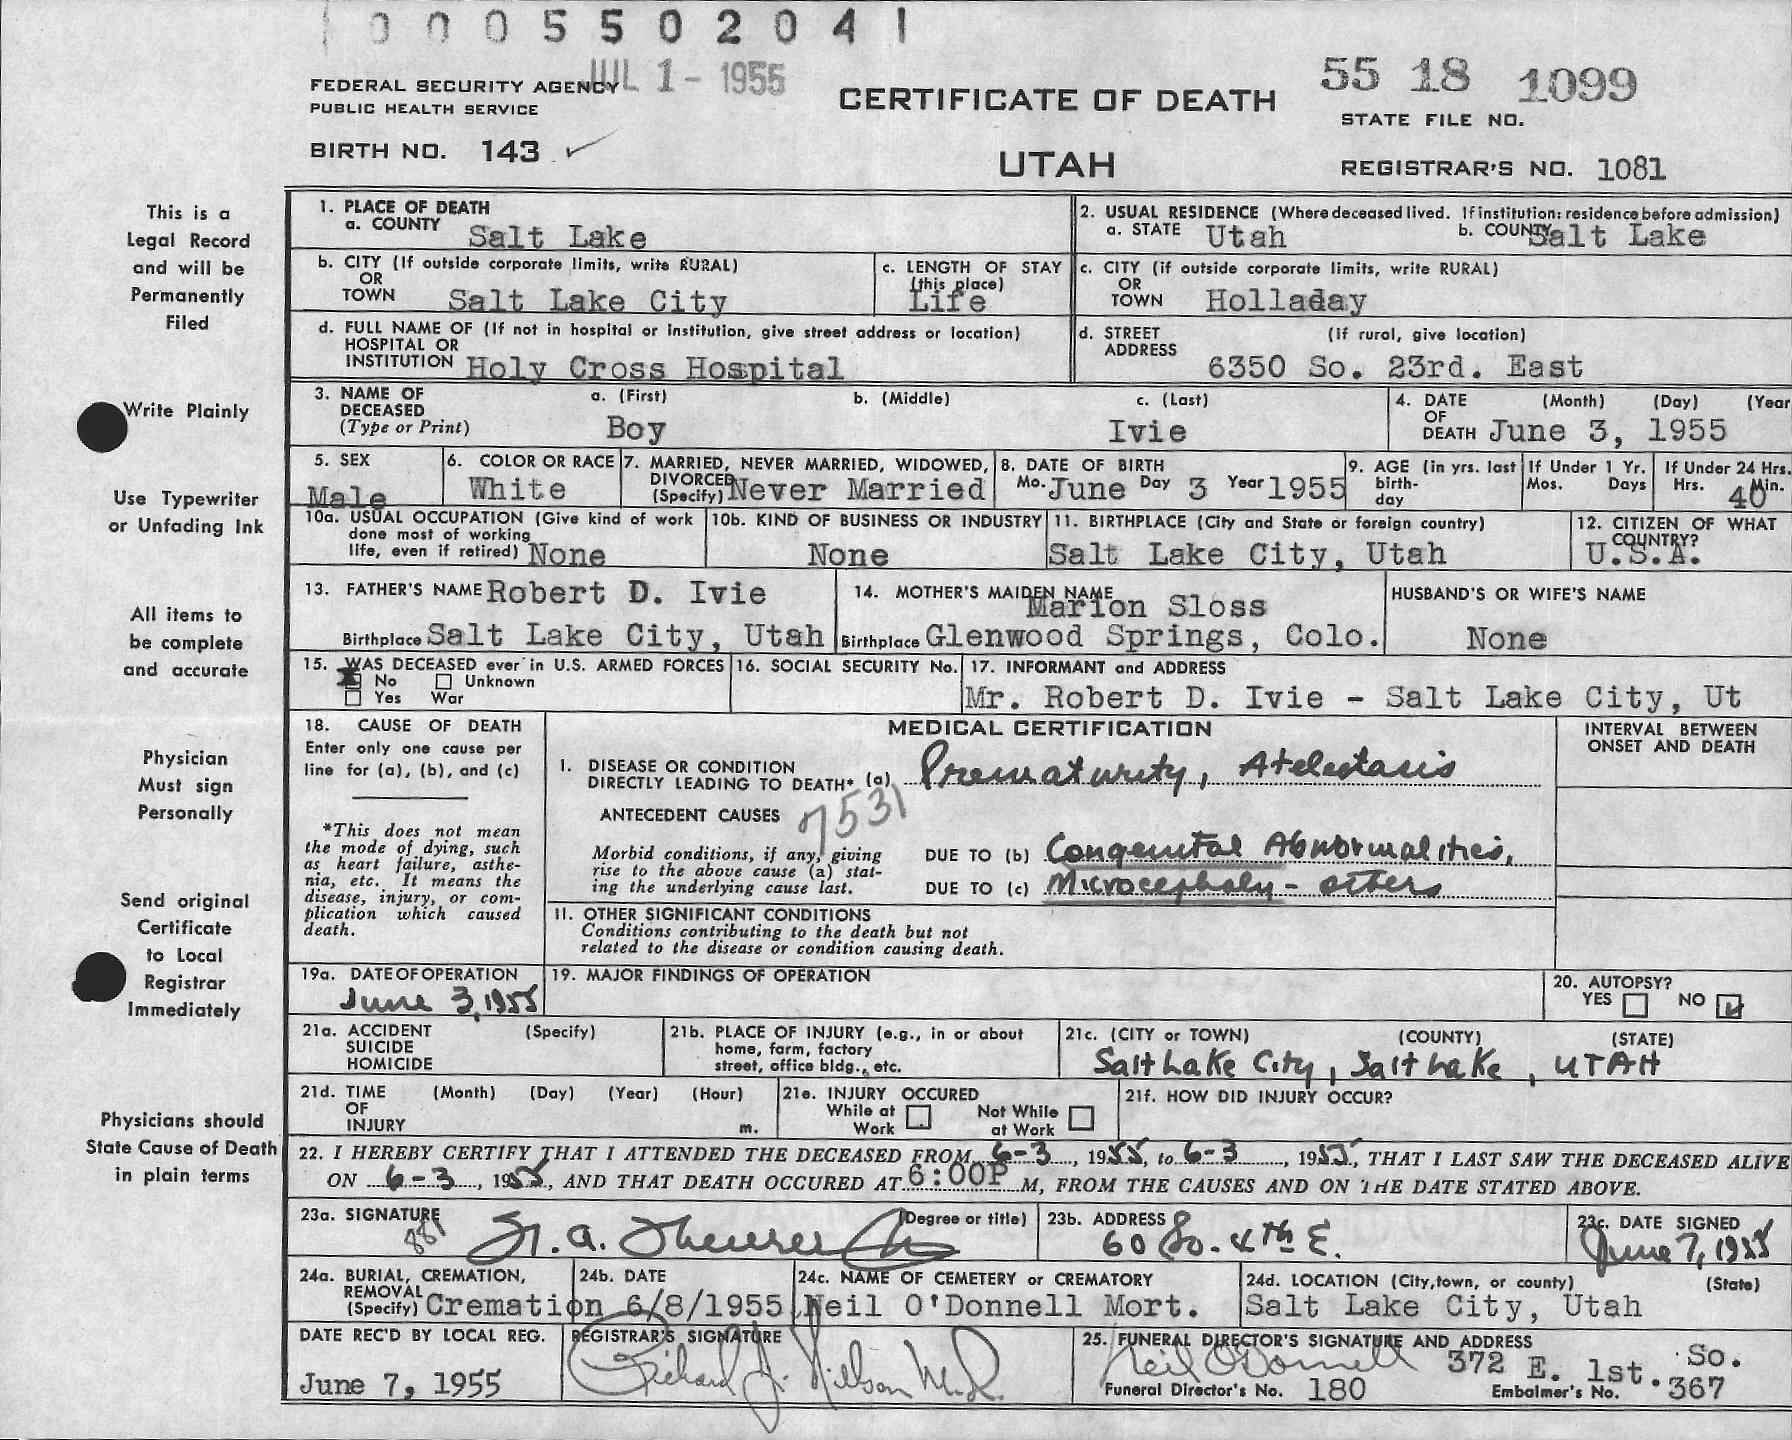 0005502041
JUL 1 - 1955
FEDERAL SECURITY AGENCY
PUBLIC HEALTH SERVICE
BIRTH NO. 143
CERTIFICATE OF DEATH
UTAH
55 18 1099
STATE FILE NO.
REGISTRAR'S NO. 1081
This is a
Legal Record
and will be
Permanently
Filed
Write Plainly
Use Typewriter
or Unfading Ink
All items to
be complete
and accurate
Physician
Must sign
Personally
Send original
Certificate
to Local
Registrar
Immediately
Physicians should
State Cause of Death
in plain terms
1. PLACE OF DEATH
a. COUNTY Salt Lake
2. USUAL RESIDENCE (Where deceased lived. If institution: residence before admission)
a. STATE Utah b. COUNTY Salt Lake
b. CITY (If outside corporate limits, write RURAL)
OR
TOWN Salt Lake City
c. LENGTH OF STAY
(this place)
Life
c. CITY (if outside corporate limits, write RURAL)
OR
TOWN Holladay
d. FULL NAME OF (If not in hospital or institution, give street address or location)
HOSPITAL OR
INSTITUTION Holy Cross Hospital
d. STREET (If rural, give location)
ADDRESS 6350 So. 23rd. East
3. NAME OF a. (First) b. (Middle) c. (Last)
DECEASED
(Type or Print) Boy Ivie
4. DATE (Month) (Day) (Year
OF
DEATH June 3, 1955
5. SEX
Male
6. COLOR OR RACE
White
7. MARRIED, NEVER MARRIED, WIDOWED,
DIVORCED
(Specify) Never Married
8. DATE OF BIRTH
Mo. June Day 3 Year 1955
9. AGE (in yrs. last
birth-
day
If Under 1 Yr.
Mos. Days
If Under 24 Hrs.
Hrs. Min.
40
10a. USUAL OCCUPATION (Give kind of work
done most of working
life, even if retired) None
10b. KIND OF BUSINESS OR INDUSTRY
None
11. BIRTHPLACE (City and State or foreign country)
Salt Lake City, Utah
12. CITIZEN OF WHAT
COUNTRY?
U.S.A.
13. FATHER'S NAME Robert D. Ivie
Birthplace Salt Lake City, Utah
14. MOTHER'S MAIDEN NAME
Marion Sloss
Birthplace Glenwood Springs, Colo.
HUSBAND'S OR WIFE'S NAME
None
15. WAS DECEASED ever in U.S. ARMED FORCES
No Unknown
Yes War
16. SOCIAL SECURITY No.
17. INFORMANT and ADDRESS
Mr. Robert D. Ivie - Salt Lake City, Ut
18. CAUSE OF DEATH
Enter only one cause per
line for (a), (b), and (c)
*This does not mean
the mode of dying, such
as heart failure, asthe-
nia, etc. It means the
disease, injury, or com-
plication which caused
death.
MEDICAL CERTIFICATION
INTERVAL BETWEEN
ONSET AND DEATH
I. DISEASE OR CONDITION
DIRECTLY LEADING TO DEATH* (a) Prematurity, Atelectasis
ANTECEDENT CAUSES
7531
Morbid conditions, if any, giving
rise to the above cause (a) stat-
ing the underlying cause last.
DUE TO (b) Congenital Abnormalities,
DUE TO (c) Microcephaly - others
II. OTHER SIGNIFICANT CONDITIONS
Conditions contributing to the death but not
related to the disease or condition causing death.
19a. DATE OF OPERATION
June 3, 1955
19. MAJOR FINDINGS OF OPERATION
20. AUTOPSY?
YES NO
21a. ACCIDENT (Specify)
SUICIDE
HOMICIDE
21b. PLACE OF INJURY (e.g., in or about
home, farm, factory
street, office bldg., etc.
21c. (CITY or TOWN) (COUNTY) (STATE)
Salt Lake City, Salt Lake, UTAH
21d. TIME (Month) (Day) (Year) (Hour)
OF
INJURY m.
21e. INJURY OCCURED
While at Work
Not While at Work
21f. HOW DID INJURY OCCUR?
22. I HEREBY CERTIFY THAT I ATTENDED THE DECEASED FROM 6-3, 1955, to 6-3, 1955, THAT I LAST SAW THE DECEASED ALIVE
ON 6-3, 1955, AND THAT DEATH OCCURED AT 6:00P M, FROM THE CAUSES AND ON THE DATE STATED ABOVE.
23a. SIGNATURE (Degree or title)
881
23b. ADDRESS
60 So. 4th E.
23c. DATE SIGNED
June 7, 1955
24a. BURIAL, CREMATION,
REMOVAL
(Specify) Cremation
24b. DATE
6/8/1955
24c. NAME OF CEMETERY or CREMATORY
Neil O'Donnell Mort.
24d. LOCATION (City, town, or county) (State)
Salt Lake City, Utah
DATE REC'D BY LOCAL REG.
June 7, 1955
REGISTRAR'S SIGNATURE
Richard J. Nielson M.D.
25. FUNERAL DIRECTOR'S SIGNATURE AND ADDRESS
Neil O'Donnell 372 E. 1st. So.
Funeral Director's No. 180 Embalmer's No. 367